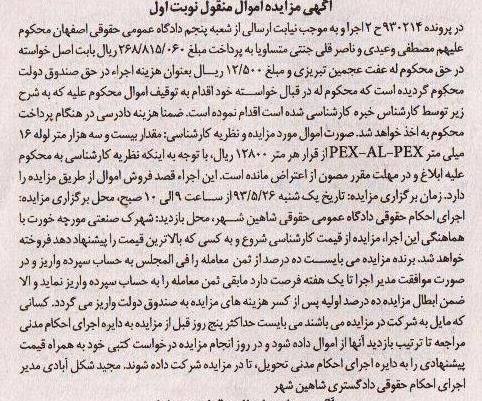 آگهی مزایده اموال منقول نوبت اول
در پرونده ۹۳۰۲۱۴ح ۲ اجرا و به موجب نیابت ارسالی از شعبه پنجم دادگاه عمومی حقوقی اصفهان محکوم
علیهم مصطفی وعیدی و ناصر قلی جنتی متساویا به پرداخت مبلغ ۲۶۸/۸۱۵/۰۶۰ ریال بابت اصل خواسته
در حق محکوم له عفت عجمین تبریزی و مبلغ ۱۲/۵۰۰ ریـال بعنوان هزینه اجراء در حق صندوق دولت
محکوم گردیده است که محکوم له در قبال خواسـته خود اقدام به توقیف اموال محکوم علیه که به شرح
زیر توسط کارشناس خبره کارشناسی شده است اقدام نموده است. ضمنا هزینه دادرسی در هنگام پرداخت
محکوم به اخذ خواهد شد. صورت اموال مورد مزایده و نظریه کارشناسی: مقدار بیست و سه هزار متر لوله ۱۶
میلی متر PEX-AL-PEX از قرار هر متر ۱۲۸۰۰ ریال، با توجه به اینکه نظریه کارشناسی به محکوم
علیه ابلاغ و در مهلت مقرر مصون از اعتراض مانده است. این اجراء قصد فروش اموال از طریق مزایده را
دارد. زمان برگزاری مزایده: تاریخ یک شنبه ۹۳/۵/۲۶ از ساعت ۹ الی ۱۰ صبح، محل برگزاری مزایده:
اجرای احکام حقوقی دادگاه عمومی حقوقی شاهین شـهر، محل بازدید: شهرک صنعتی مورچه خورت با
هماهنگی این اجراء، مزایده از قیمت کارشناسی شروع و به کسی که بالاترین قیمت را پیشنهاد دهد فروخته
خواهد شد. برنده مزایده می بایسـت ده درصد از ثمن معامله را فی المجلس به حساب سپرده واریز و در
صورت موافقت مدیر اجرا تا یک هفته فرصت دارد مابقی ثمن معامله را به حساب سپرده واریز نماید و الا
ضمن ابطال مزایده ده درصد اولیه پس از کسر هزینه های مزایده به صندوق دولت واریز می گردد. کسانی
که مایل به شرکت در مزایده می باشند می بایست حداکثر پنج روز قبل از مزایده به دایره اجرای احکام مدنی
مراجعه تا ترتیب بازدید آنها از اموال داده شود و در روز انجام مزایده درخواست کتبی خود به همراه قیمت
پیشنهادی را به دایره اجرای احکام مدنی تحویل، تا در مزایده شرکت داده شوند. مجید شکل آبادی مدیر
اجرای احکام حقوقی دادگستری شاهین شهر